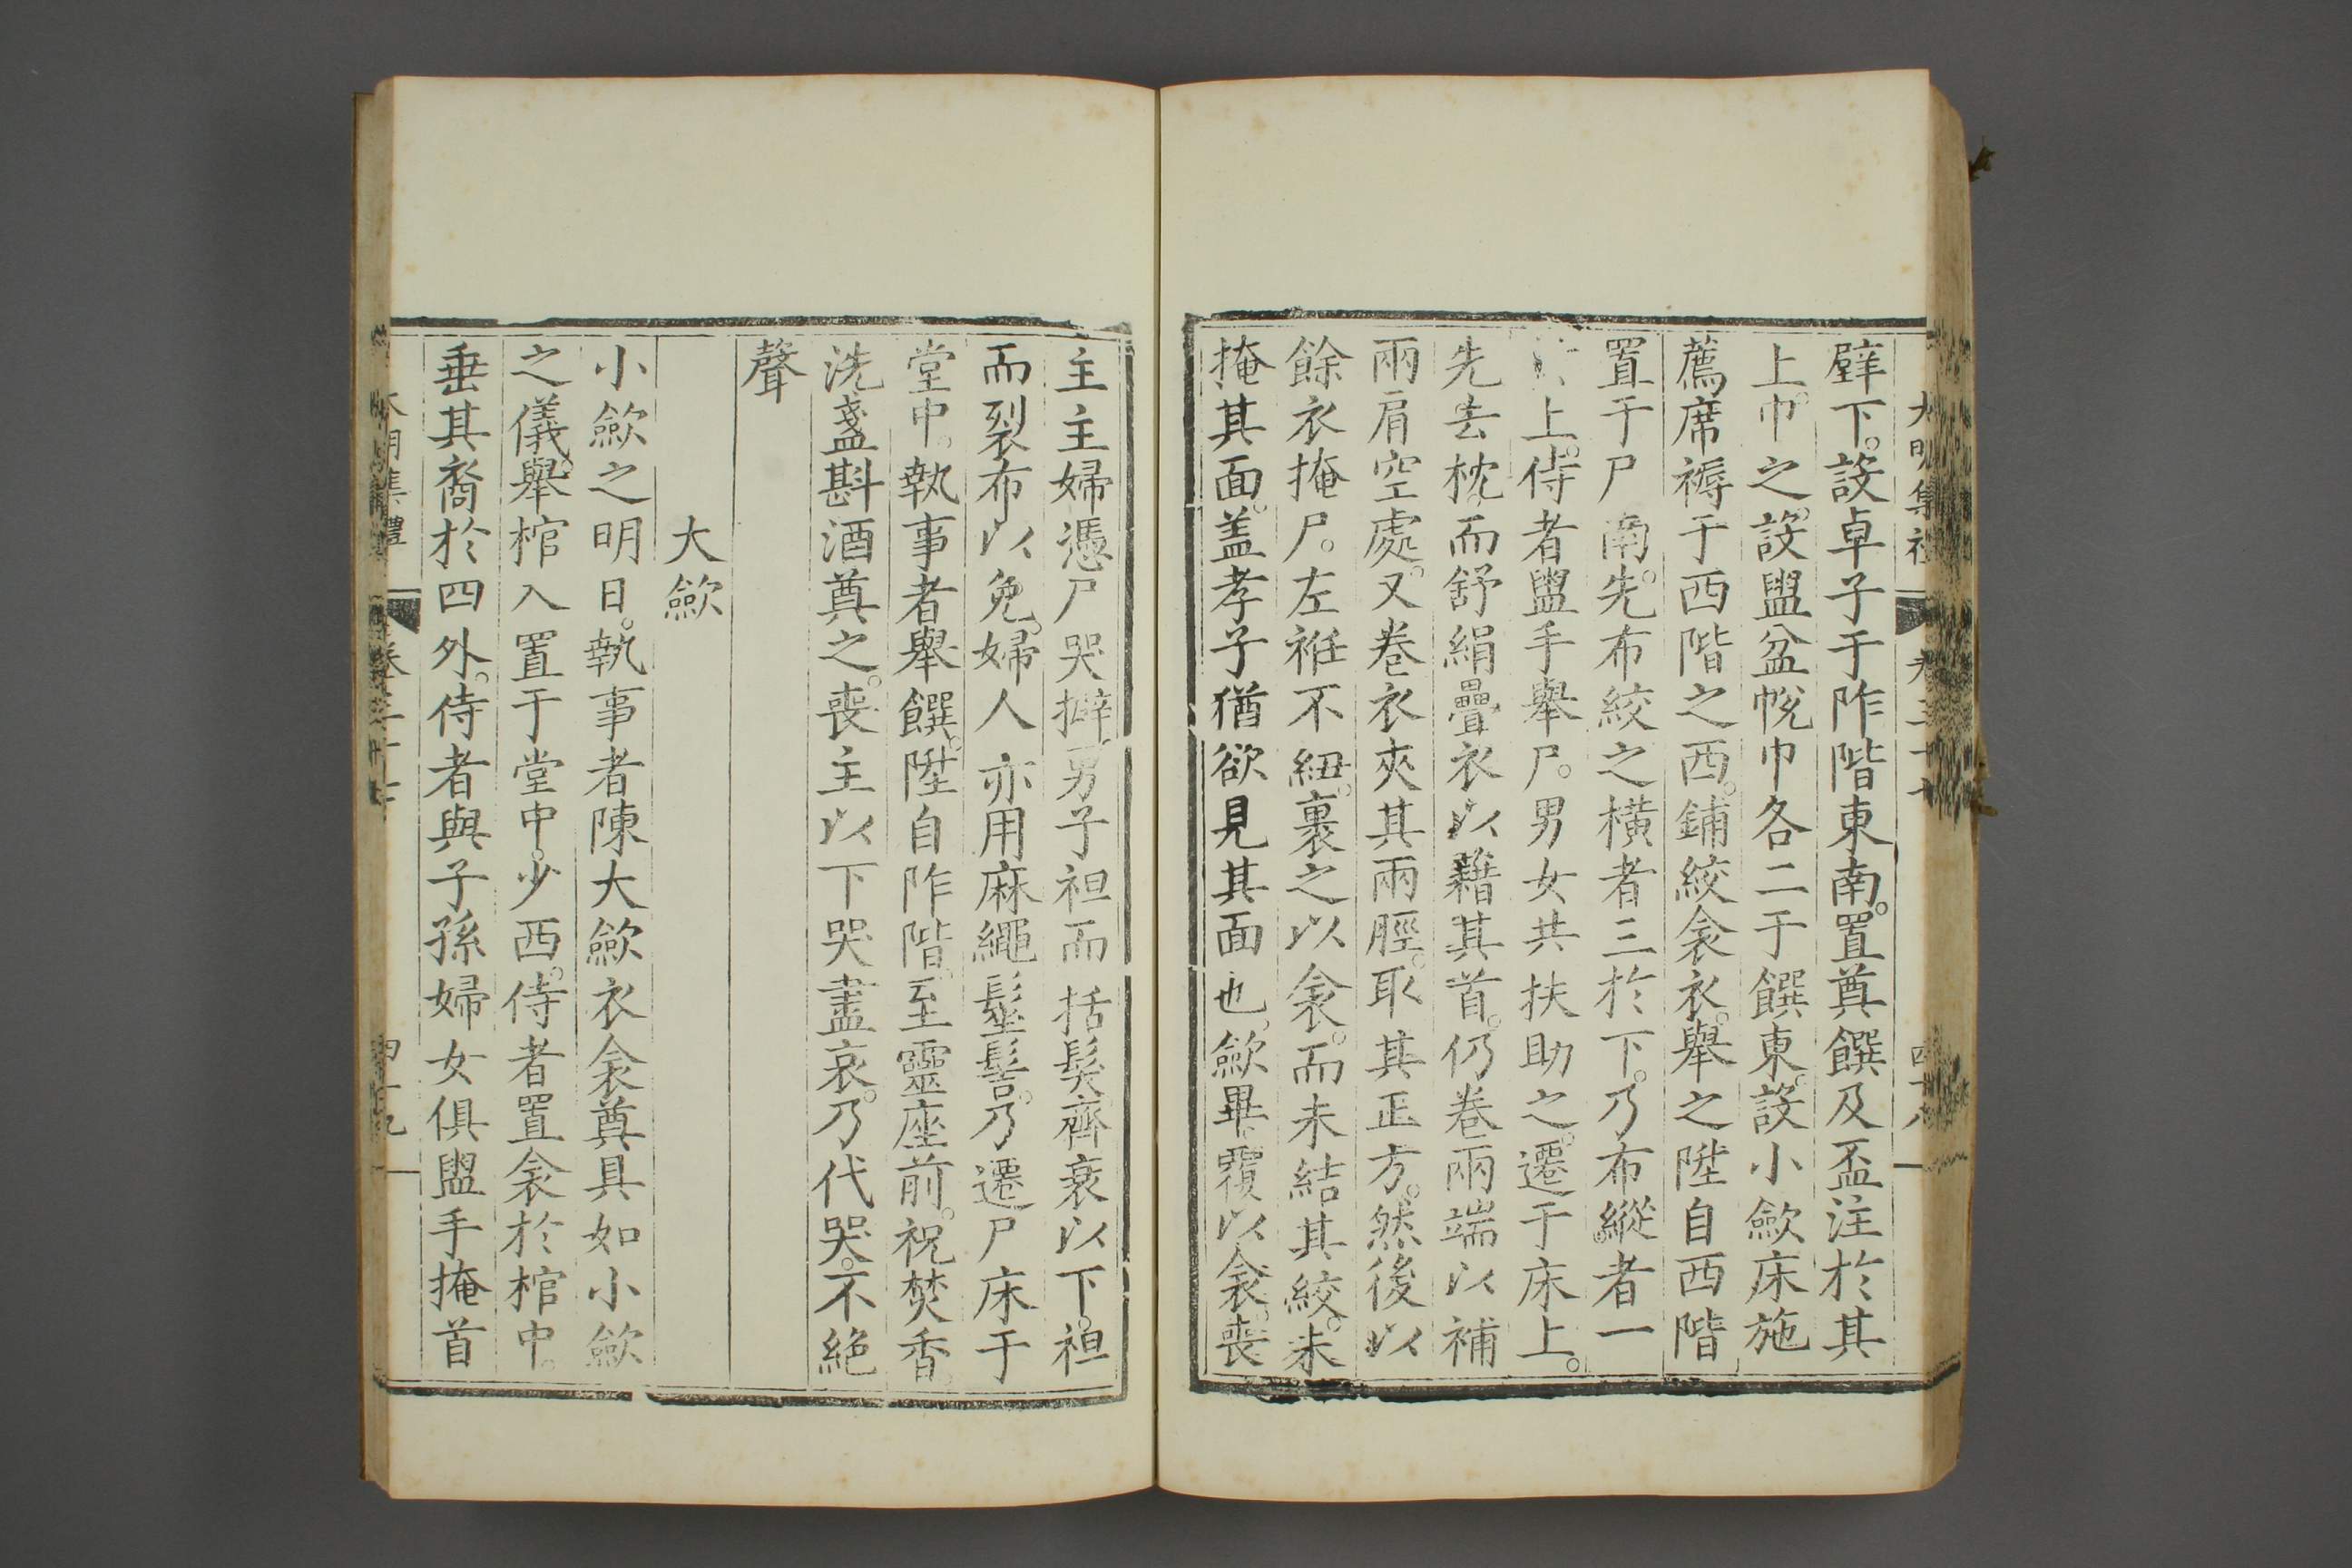 大明集禮 卷三十七 四十八
壁下。設卓子于阼階東南。置奠饌及盃注於其
上。巾之。設盥盆帨巾各二于饌東。設小歛床施
薦席褥于西階之西。鋪絞衾衣。舉之陞自西階
置于尸南。先布絞之橫者三於下。乃布縱者一
上。侍者盥手舉尸。男女共扶助之。遷于床上。
先去枕。而舒絹疊衣以藉其首。仍卷兩端以補
兩肩空處。又卷衣夾其兩脛。取其正方。然後以
餘衣掩尸。左袵不紐。裹之以衾。而未結其絞。未
掩其面。盖孝子猶欲見其面也。歛畢。覆以衾。喪
主主婦憑尸哭擗。男子袒而括髮。齊衰以下。袒
而裂布以免。婦人亦用麻繩髽髻。乃遷尸床于
堂中。執事者舉饌。陞自阼階。至靈座前。祝焚香。
洗盞斟酒奠之。喪主以下哭盡哀。乃代哭。不絕
聲
大歛
小歛之明日。執事者陳大歛衣衾奠具如小歛
之儀。舉棺入置于堂中。少西。侍者置衾於棺中。
垂其裔於四外。侍者與子孫婦女俱盥手掩首
大明集禮 卷三十七 四十九